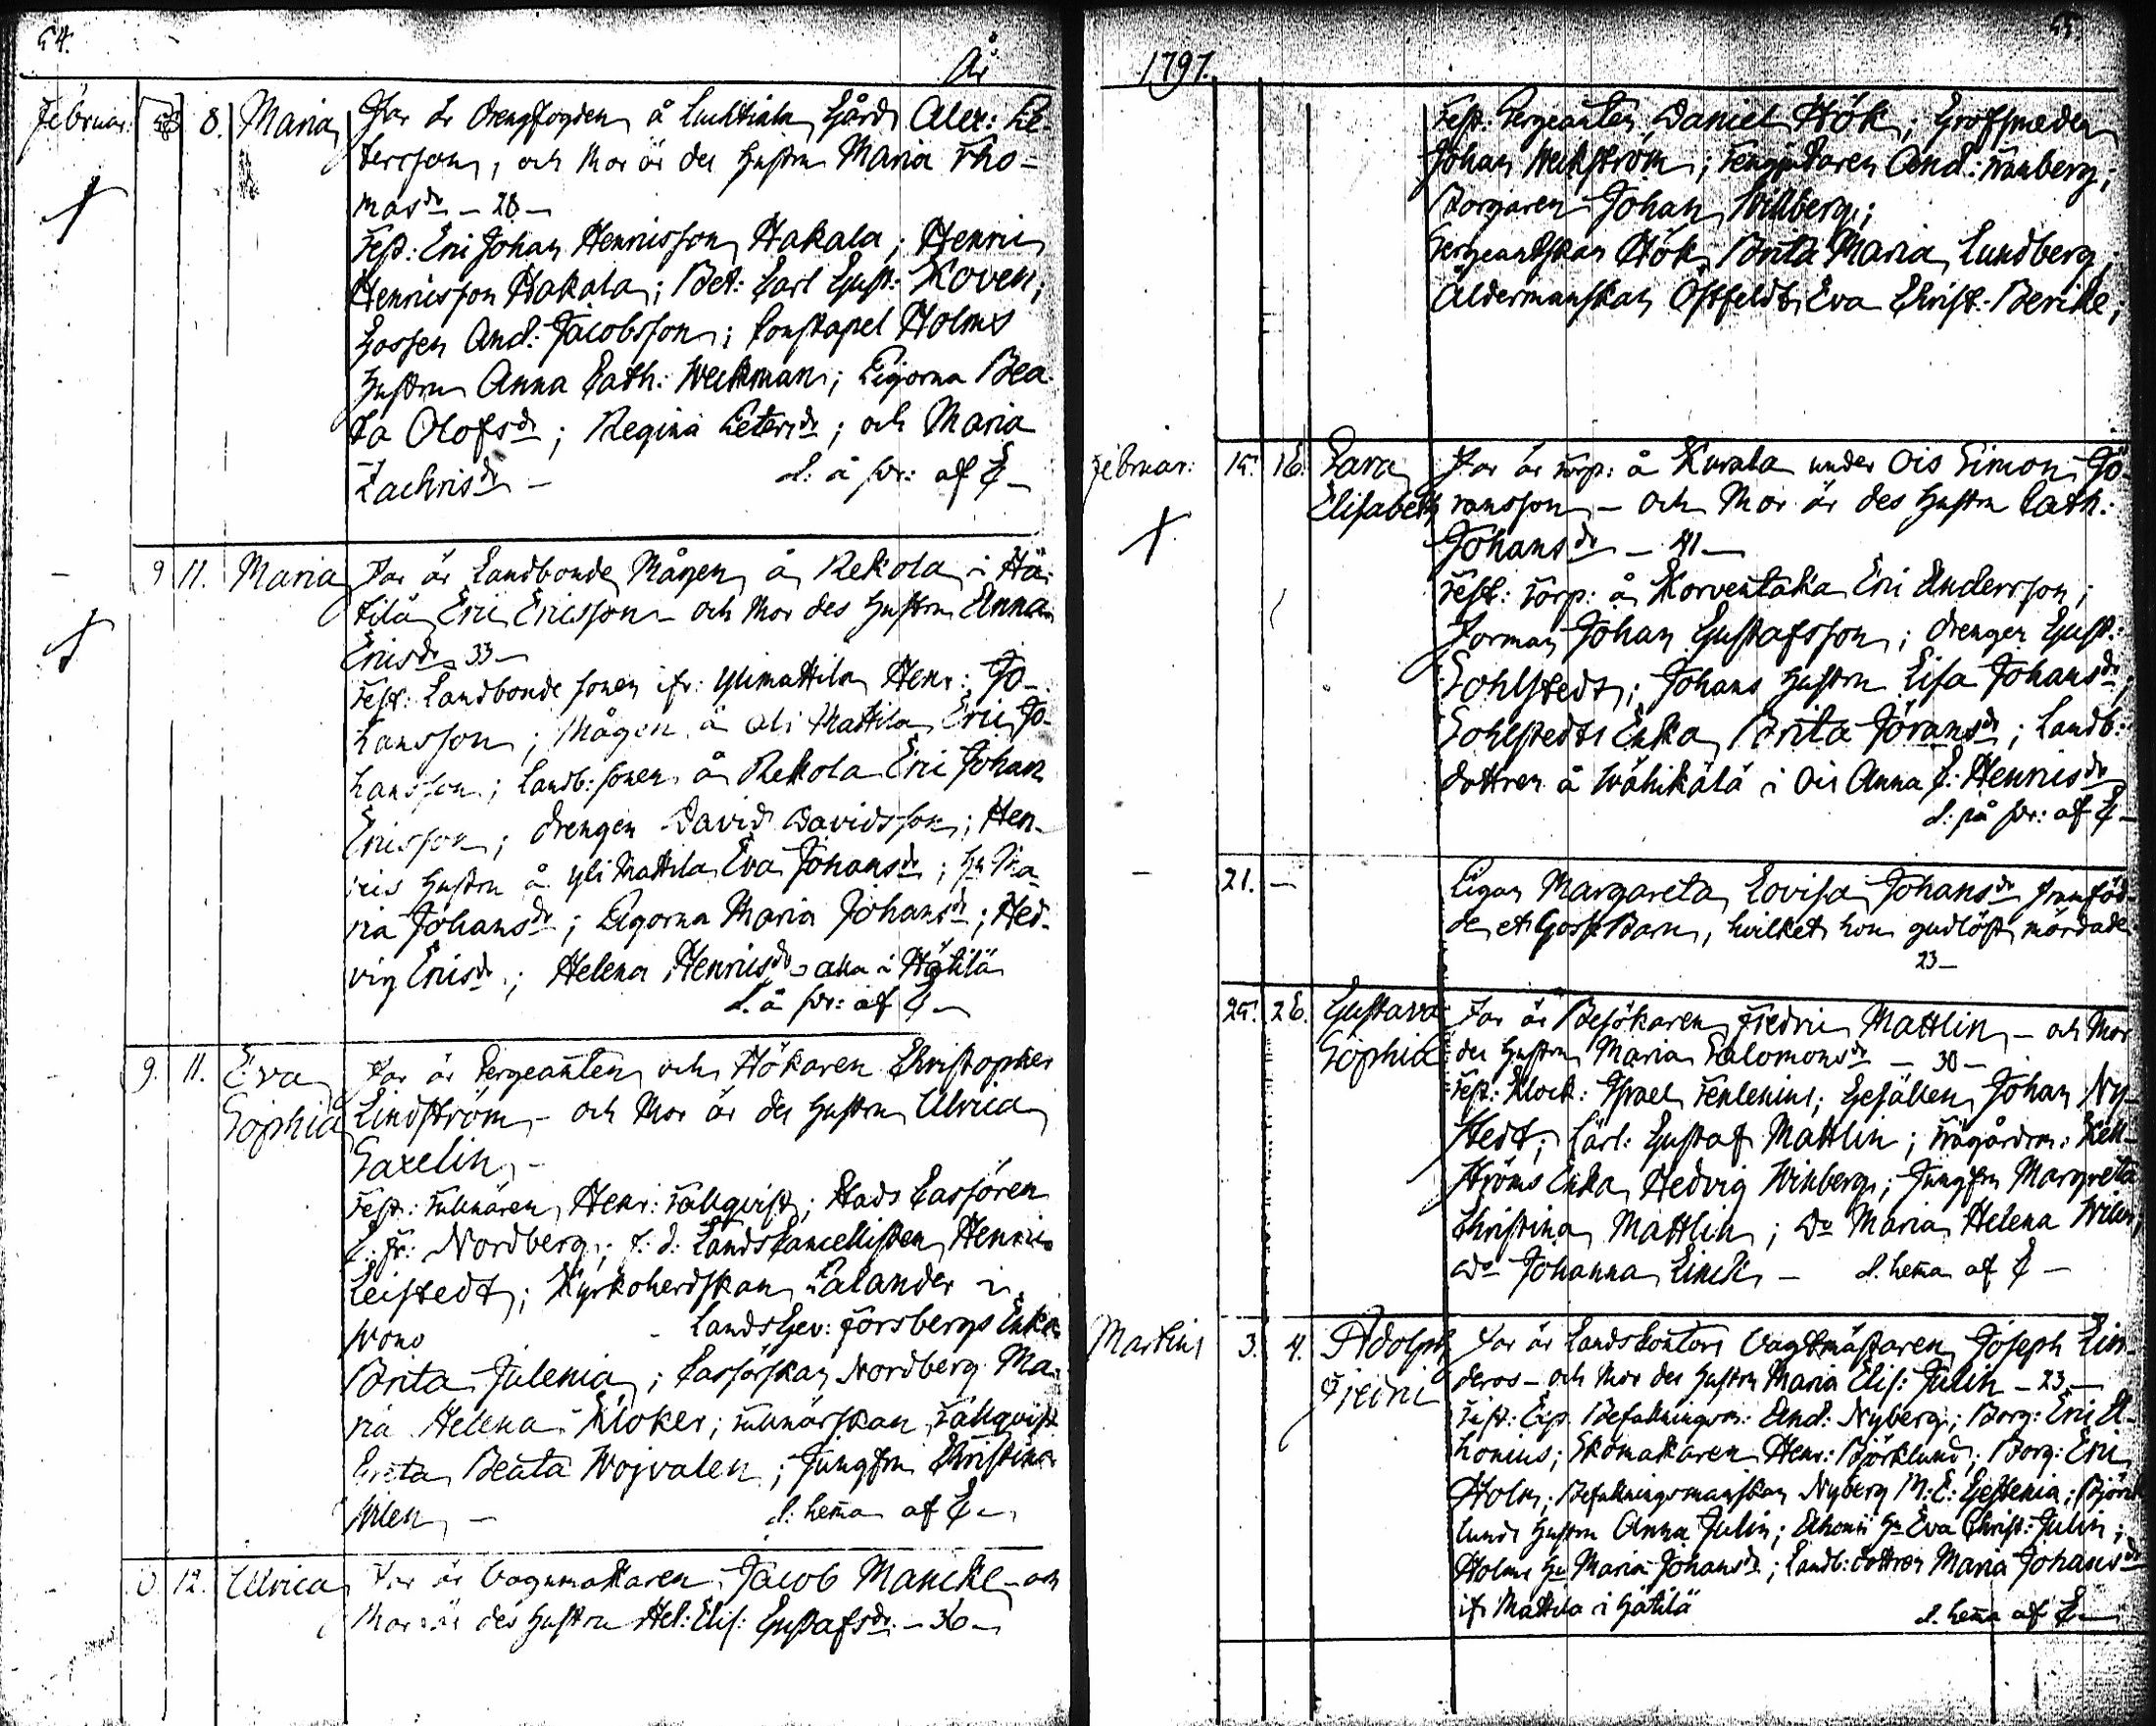 54.
År
Februar. 8. Maria Far är drengfogden å Luchtiala Gård Alex: Pe-
tersson, och Mor är des Hustru Maria Tho-
mas dr - 28 -
Test: Eric Johan Henricsson Hakala; Henric
Henricsson Hakala; Bet: Carl Gust: Roven;
Gossen And: Jacobsson; Constapel Holms
Hustru Anna Cath: Weckman; Pigorna Bea-
ta Olofs dr; Regina Peters dr; och Maria
Zachris dr - d: å sör: af C -
9 11. Maria Far är Landbonde Mågen å Rekola i Hä-
tilä Eric Ericsson - och Mor des Hustru Anna
Erics dr 33 -
Test: Landbonde sonen ifr: Ylimattila Henr: Jo-
hansson; Mågen å Ali Mattila Eric Jo-
hansson; Landb: sonen å Rekola Eric Johan
Ericsson; drengen David Davidsson; Hen-
rics Hustru å Yli Mattila Eva Johans dr; Hu Ma-
ria Johans dr; Pigorna Maria Johans dr; Hed-
vig Erics dr; Helena Henrics dr alla i Hätilä
d. å sör: af C -
9. 11. Eva Far är Sergeanten och Hökaren Christopher
Sophia Lindström - och Mor är des Hustru Ulrica
Saxelin -
Test: Tullnären Henr: Tällqvist; Stads Cassören
C: Fr: Nordberg; f: d: Lands Cancellisten Henric
Leistedt; Kyrkoherdskan Calander i
Wono - LandsGev: Forsbergs Enka
Brita Julenia; Cassörskan Nordberg Ma-
ria Helena Kloker; Tullnärskan Tällqvist
Greta Beata Wojvalen; Jungfru Christina
Wilen - d: hema af C -
0 12. Ulrica Far är Vagnmakaren Jacob Mancke - och
Mor är des Hustru Hel: Elis: Gustafs dr - 36 -
55
1797.
Test: Sergeanten Daniel Hök; Grofsmeden
Johan Weckström; And: Tranberg;
Borgaren Johan Willberg;
Sergeantskan Hök Brita Maria Lundberg;
Åldermanskan Östfeldt Eva Christ: Bericke;
Februar: 15. 16. Sara Far är Torp: å Kurala under Ois Simon Jö-
Elisabeth ransson - och Mor är des Hustru Cath:
Johans dr - 41 -
Test: Torp: å Korventaka Eric Andersson;
Forman Johan Gustafsson; drengen Gust:
Sohlstedt; Johans Hustru Lisa Johans dr;
Sohlstedts Enka Brita Jörans dr; Landb:
dottren å Wähikälä i Ois Anna C: Henrics dr
d: på sör: af C -
21. - Pigan Margareta Lovisa Johans dr framföd-
de et Gosse Barn, hvilket hon gudlöst mördade
23 -
25. 26. Gustava Far är Besökaren Fredric Mattlin - och Mor
Sophia des Hustru Maria Salomons dr - 30 -
Test: Klock: Israel Tenlenius; Gesällen Johan Ny-
stedt; Lärl: Gustaf Mattlin; Trägårdm: Kell-
ströms Enka Hedvig Winberg; Jungfru Margreta
Christina Mattlin; Do Maria Helena Wilen;
Do Johanna Linck - d. hema af C -
Martius 3. 4. Adolph Far är Landskontors Vagtmästaren Joseph Lin-
Fredric deros - och Mor des Hustru Maria Elis: Julin - 23 -
Test: Exp. Befallningsm: And: Nyberg; Borg: Eric A-
honius; Skomakaren Henr: Björklund; Borg: Eric
Holm; Befallningsmanskan Nyberg M: C: Gestenia; Björck
lunds Hustru Anna Julin; Ahonii Hu Eva Christ: Julin;
Holms Hu Maria Johans dr; Landb: dottren Maria Johans dr
ifr Mattila i Hätilä d. hema af C -